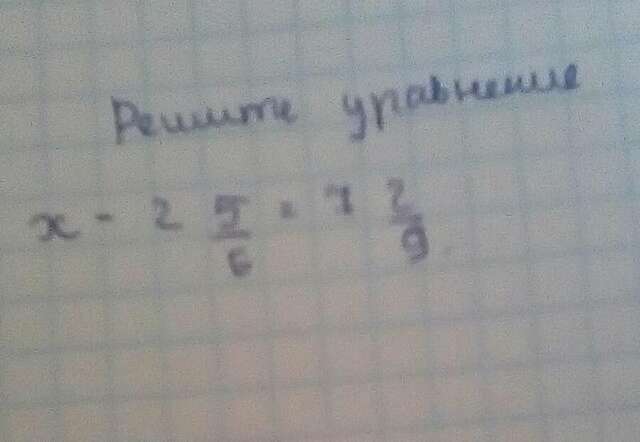 Решите уравнение
x - 2 5/6 = 7 2/9